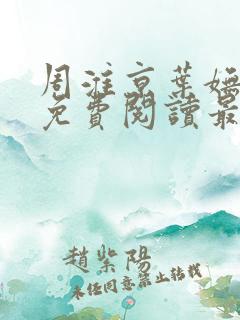 周淮京葉嫵
免費閱讀最
趙紫陽
未经同意禁止转载